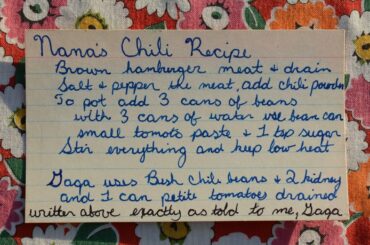 Nana's Chili Recipe
Brown hamburger meat + drain
Salt + pepper the meat, add chili powder
To pot add 3 cans of beans
with 3 cans of water use bean can
small tomato paste + 1 tsp sugar
Stir everything and keep low heat
Gaga uses Bush Chili beans + 2 kidney
and 1 can petite tomatoes drained
written above exactly as told to me, Gaga